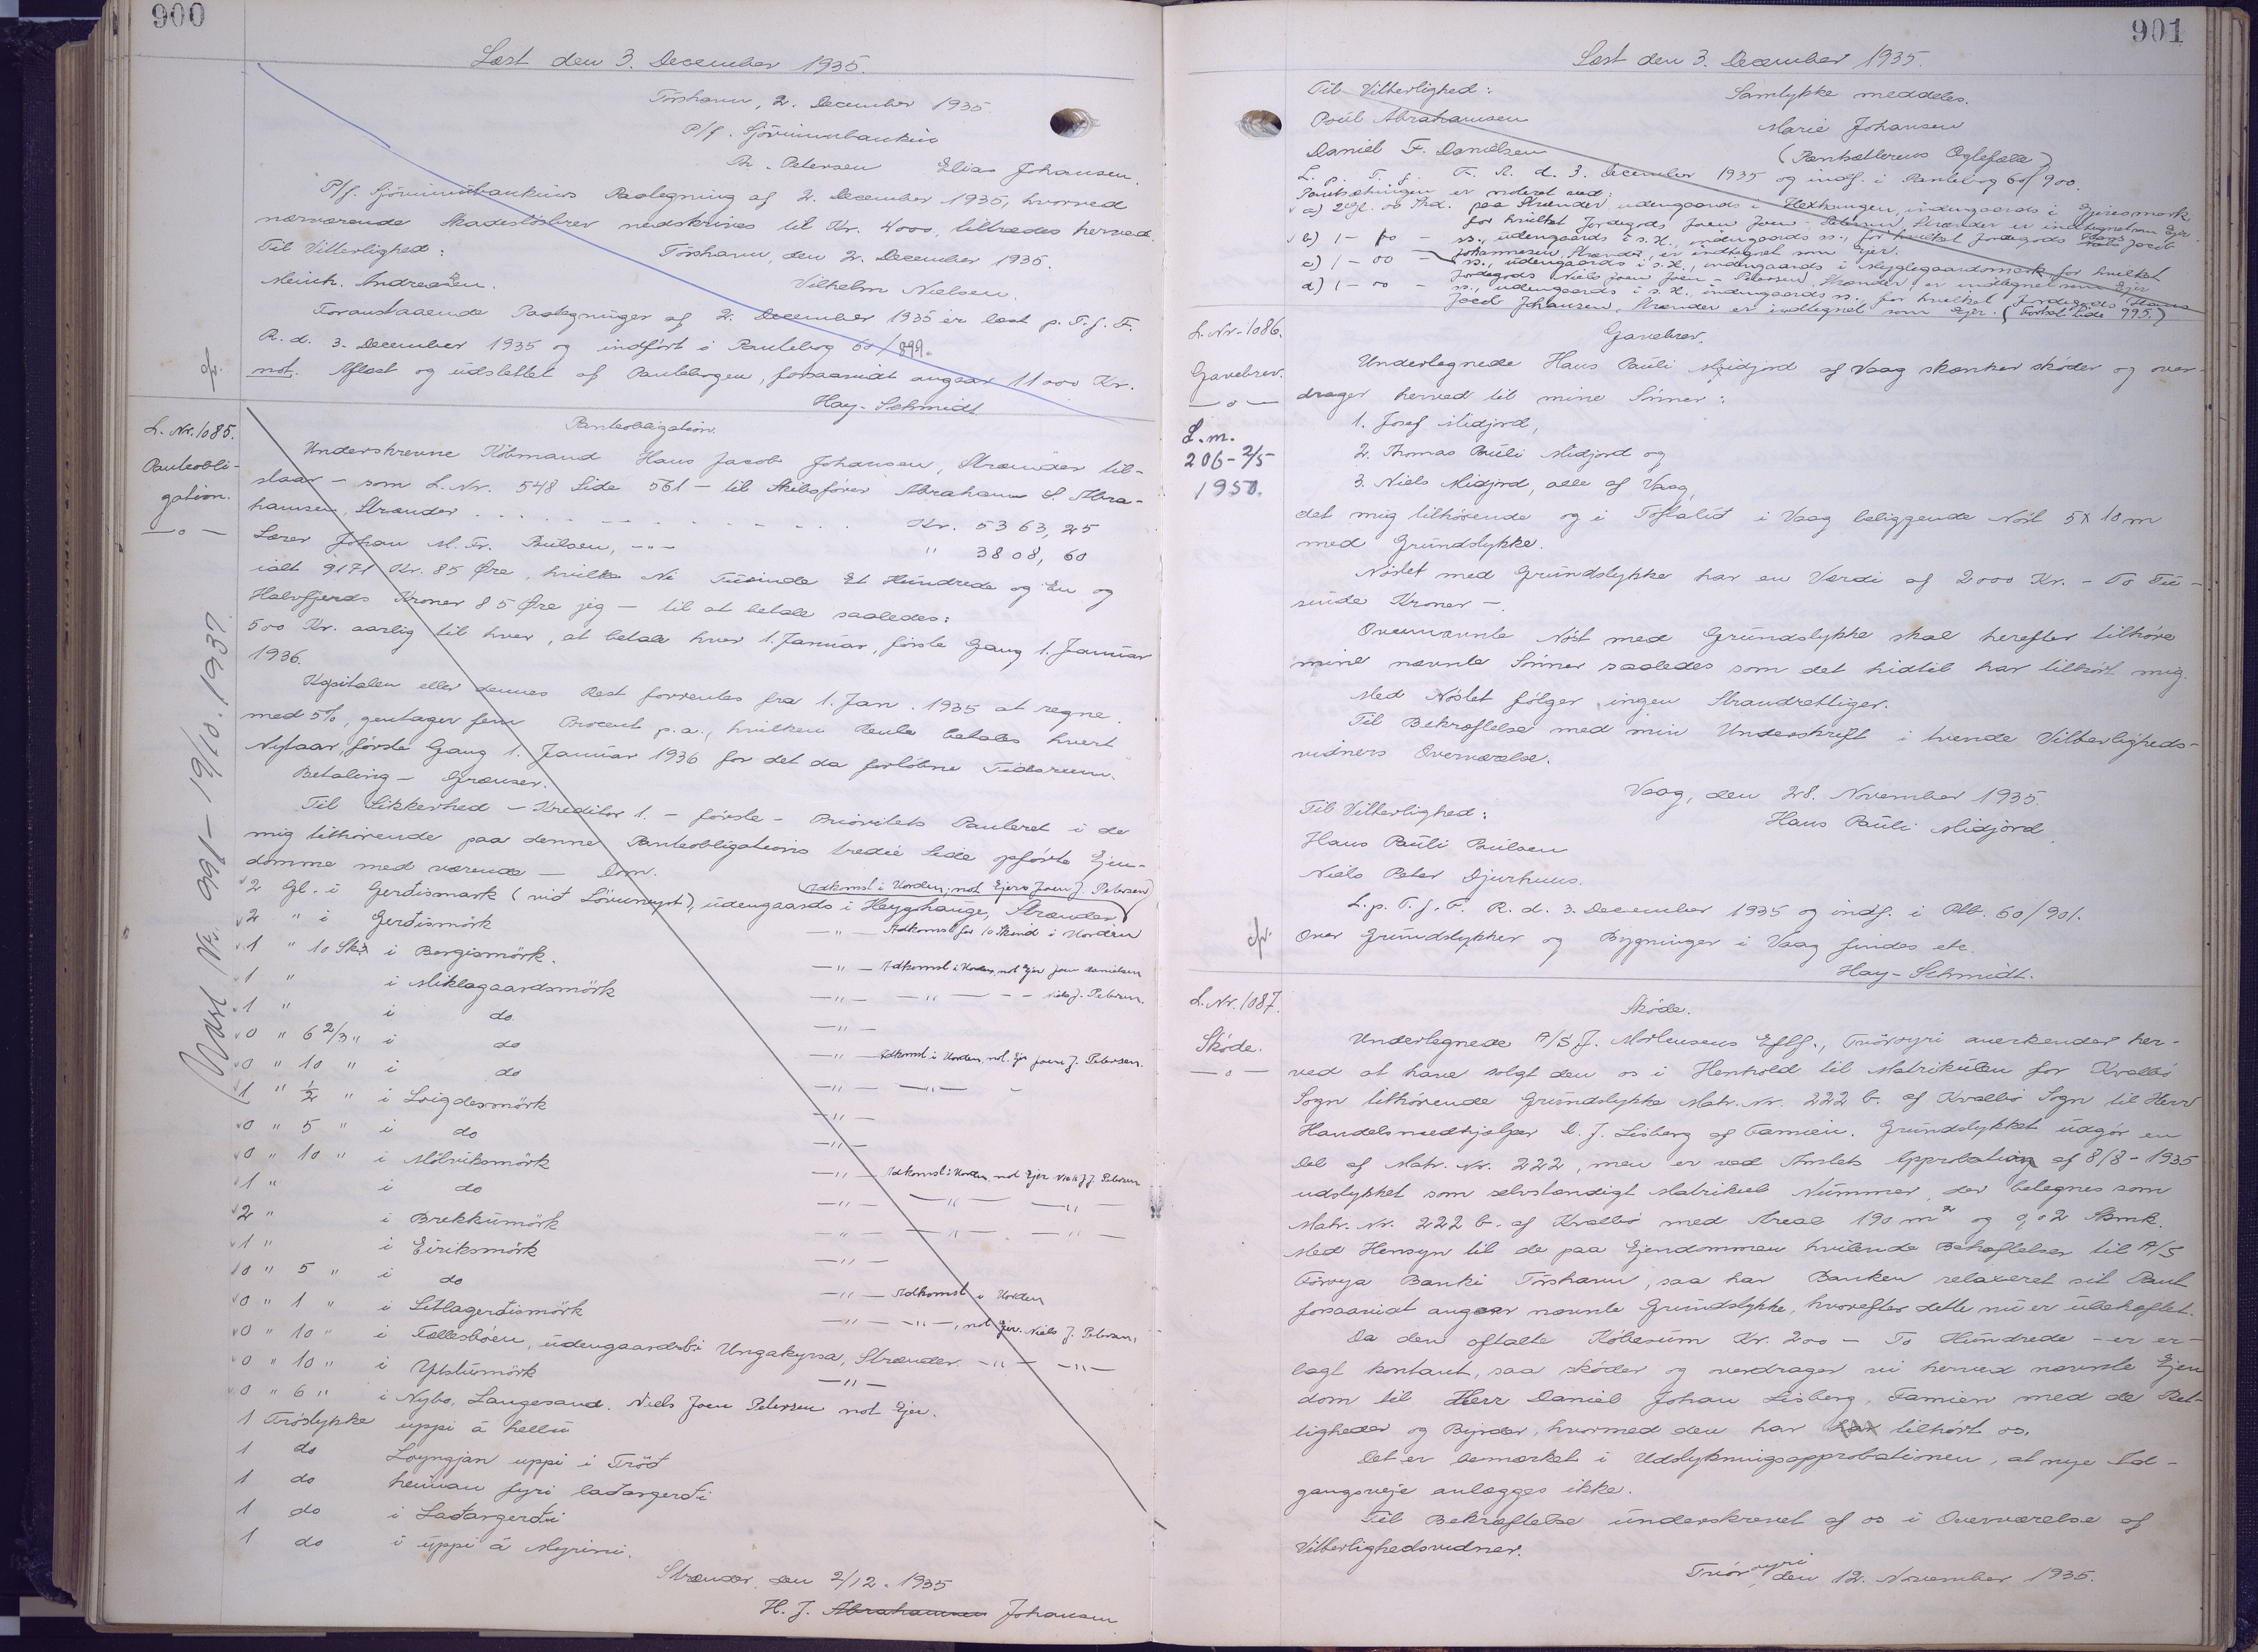 900
Læst den 3. December 1935.
Tórshavn, 2. December 1935
P/f. Sjóvinnubankin
Petersen Elias Johansen.
P/f. Sjóvinnubankins Paategning af 2. December 1935, hvorved
nærværende Skadesløsbrev nedskrives til Kr. 4000, tiltrædes herved.
Til Vitterlighed: Tórshavn, den 2. December 1935.
Meinh. Andreasen. Vilhelm Nielsen.
Foranstaaende Paategninger af 2. December 1935 er læst p. T. f. F.
R. d. 3. December 1935 og indført i Pantebog 60/899.
not. Aflæst og udslettet af Pantebogen, forsaavidt angaar 11000 Kr.
Hay-Schmidt
L. Nr. 1085.
Panteobli-
gation.
—o—
Slært Nr. 991 - 19/10. 1937.
Panteobligation.
Underskrevne Købmand Hans Jacob Johansen, Strænder til-
staar - som L. Nr. 548 Side 561 - til Skibsfører Abraham S. Abra-
hamsen, Strænder . . . . Kr. 5363,25
Lærer Johan M. Fr. Poulsen, -"- " 3808,60
ialt 9171 Kr. 85 Øre, hvilke Ni Tusinde Et Hundrede og En og
Halvfjerds Kroner 85 Øre jeg - til at betale saaledes:
500 Kr. aarlig til hver, at betale hver 1. Januar, første Gang 1. Januar
1936.
Kapitalen eller dennes Rest forrentes fra 1. Jan. 1935 at regne
med 5%, gentager fem Procent p. a., hvilken Rente betales hvert
Nytaar, første Gang 1. Januar 1936 for det da forløbne Tidsrum.
Betaling - Grænser.
Til Sikkerhed - Kreditor 1. - første - Prioritets Panteret i de
mig tilhørende paa denne Panteobligations tredie Side opførte Ejen-
domme med værende - Dom.
(Adkomst i Orden; not Ejer Joen J. Petersen)
2 Gl. i Gerdismørk (við Lðvunnyst), udengaards i Heygshauge, Strænder
2 " i Gerdismørk -"- Adkomst for 10 Skind i Orden
1 " 10 Sk. i Bergismørk. -"- Adkomst i Orden, not Ejer Joen Danielsen
1 " i Miklagaardsmørk -"- -"- - - Niels J. Petersen.
1 " i do. -"-
0 " 6 2/3 " i do -"- Adkomst i Orden, not. Ejer Joen J. Petersen.
0 " 10 " i do -"- -"-
1 " ½ " i Loigdesmørk -"-
0 " 5 " i do -"-
0 " 10 " i Mølviksmørk -"- Adkomst i Orden, not Ejer Niels J. J. Petersen
1 " i do -"- -"- -"-
2 " i Brekkumørk -"- -"- -"-
1 " i Eiriksmørk -"-
0 " 5 " i do -"- Adkomst i Orden
0 " 1 " i Litlagerðismørk -"- -"-, not Ejer. Niels J. Petersen,
0 " 10 " i Fællesbøen, udengaards i Ungakyrsa, Strænder -"- -"-
0 " 10 " i Ytstumørk -"-
0 " 6 " i Nybo, Langesand. Niels Joen Petersen not Ejer.
1 Trøstykke uppi á hellu
1 do Loyngjan uppi i Trøð
1 do heiman fyri laðangerði
1 do i Laðangerði
1 do i uppi á Myrini.
Strænder, den 2/12. 1935
H. J. Abrahamsen Johansen
901
Læst den 3. December 1935.
Til Vitterlighed: Samtykke meddeles.
Poul Abrahamsen Marie Johansen
Daniel F. Danielsen (Pantsætterens Ægtefælle)
L. p. T. f. F. R. d. 3. December 1935 og indf. i Pantebog 60/900.
Pantsætningen er noteret ved:
a) 2 Gl. 00 Skd. paa Strænder udengaards i Høxhaugen, indengaards i Gjerismørk
for hvilket Jordegods Joen Joen Petersen, Strænder er indtegnet som Ejer
b) 1 - 10 - ss., udengaards i s. H., indengaards ss., for hvilket Jordegods Hans Jacob
Johannesen, Strænder, er indtegnet som Ejer.
c) 1 - 00 - ss., udengaards i s. H., indengaards i Myglegaardsmørk for hvilket
Jordegods Niels Joen Joen - Petersen, Strænder er indtegnet som Ejer
d) 1 - 00 - ss., udengaards i s. H. indengaards ss. for hvilket Jordegods Hans
Jacob Johansen, Strænder er indtegnet som Ejer. (Forts. Side 995.)
L. Nr. 1086.
Gavebrev.
—o—
L. m.
206-2/5
1950.
Gavebrev.
Undertegnede Hans Pauli Midjord af Vaag skænker skøder og over-
drager herved til mine Sønner:
1. Josef Midjord,
2. Thomas Pauli Midjord og
3. Niels Midjord, alle af Vaag,
det mig tilhørende og i Toftalið i Vaag beliggende Nøst 5 x 10 m
med Grundstykke.
Nøstet med Grundstykke har en Værdi af 2000 Kr. - To Tu-
sinde Kroner -.
Ovennævnte Nøst med Grundstykke skal herefter tilhøre
mine nævnte Sønner saaledes som det hidtil har tilhørt mig.
Med Nøstet følger ingen Strandrettiger.
Til Bekræftelse med min Underskrift i tvende Vitterligheds-
vidners Overværelse.
Vaag, den 28. November 1935.
Til Vitterlighed: Hans Pauli Midjord
Hans Pauli Poulsen
Niels Peter Djurhuus.
L. p. T. f. F. R. d. 3. December 1935 og indf. i Ptb. 60/901.
Over Grundstykker og Bygninger i Vaag findes etc.
Hay-Schmidt.
L. Nr. 1087.
Skøde.
—o—
Skøde.
Undertegnede A/S J. Mortensens Eftf., Tvöroyri anerkender her-
ved at have solgt den os i Henhold til Matrikulen for Kvalbø
Sogn tilhørende Grundstykke Matr. Nr. 222 b. af Kvalbø Sogn til Herr
Handelsmedhjælper D. J. Lisberg af Famien. Grundstykket udgør en
Del af Matr. Nr. 222, men er ved Amtets Approbation af 8/8 - 1935
udstykket som selvstændigt Matrikul Nummer, der betegnes som
Matr. Nr. 222 b. af Kvalbø med Areal 190 m² og 0,02 Skmk.
Med Hensyn til de paa Ejendommen hvilende Behæftelser til A/S
Føroya Banki Tórshavn, saa har Banken relaxeret sit Pant
forsaavidt angaar nævnte Grundstykke, hvorefter dette nu er ubehæftet.
Da den aftalte Købesum Kr. 200 - To Hundrede - er er-
lagt kontant, saa skøder og overdrager vi herved nævnte Ejen
dom til Herr Daniel Johan Lisberg, Famien med de Ret-
tigheder og Byrder, hvormed den har har tilhørt os.
Det er bemærket i Udstykningsapprobationen, at nye Ad-
gangsveje anlægges ikke.
Til Bekræftelse underskrevet af os i Overværelse af
Vitterlighedsvidner.
Tvöroyri, den 12. November 1935.